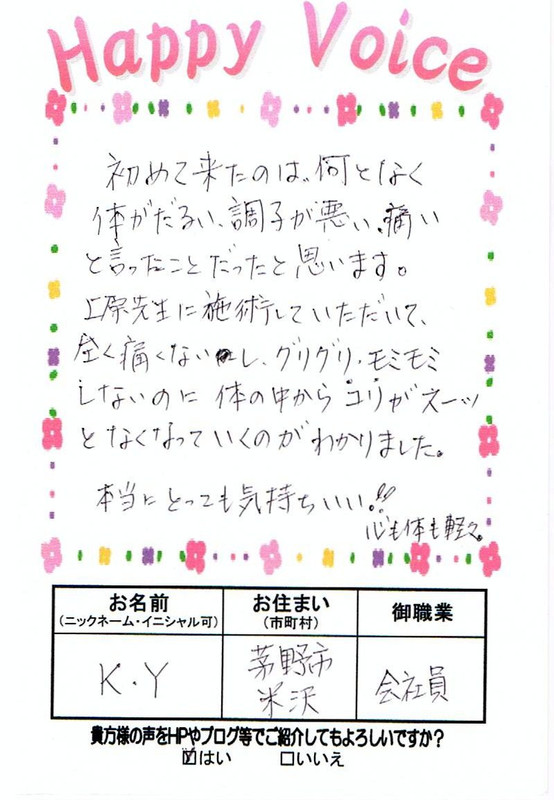 Happy Voice
初めて来たのは、何となく
体がだるい、調子が悪い、痛い
と言ったことだったと思います。
上原先生に施術していただいて、
全く痛くないし、グリグリ・モミモミ
しないのに体の中からコリがスーッ
となくなっていくのがわかりました。
本当にとっても気持ちいい!!
心も体も軽々。
お名前 お住まい 御職業
(ニックネーム・イニシャル可) (市町村)
K・Y 茅野市 会社員
米沢
貴方様の声をHPやブログ等でご紹介してもよろしいですか?
☑はい □いいえ